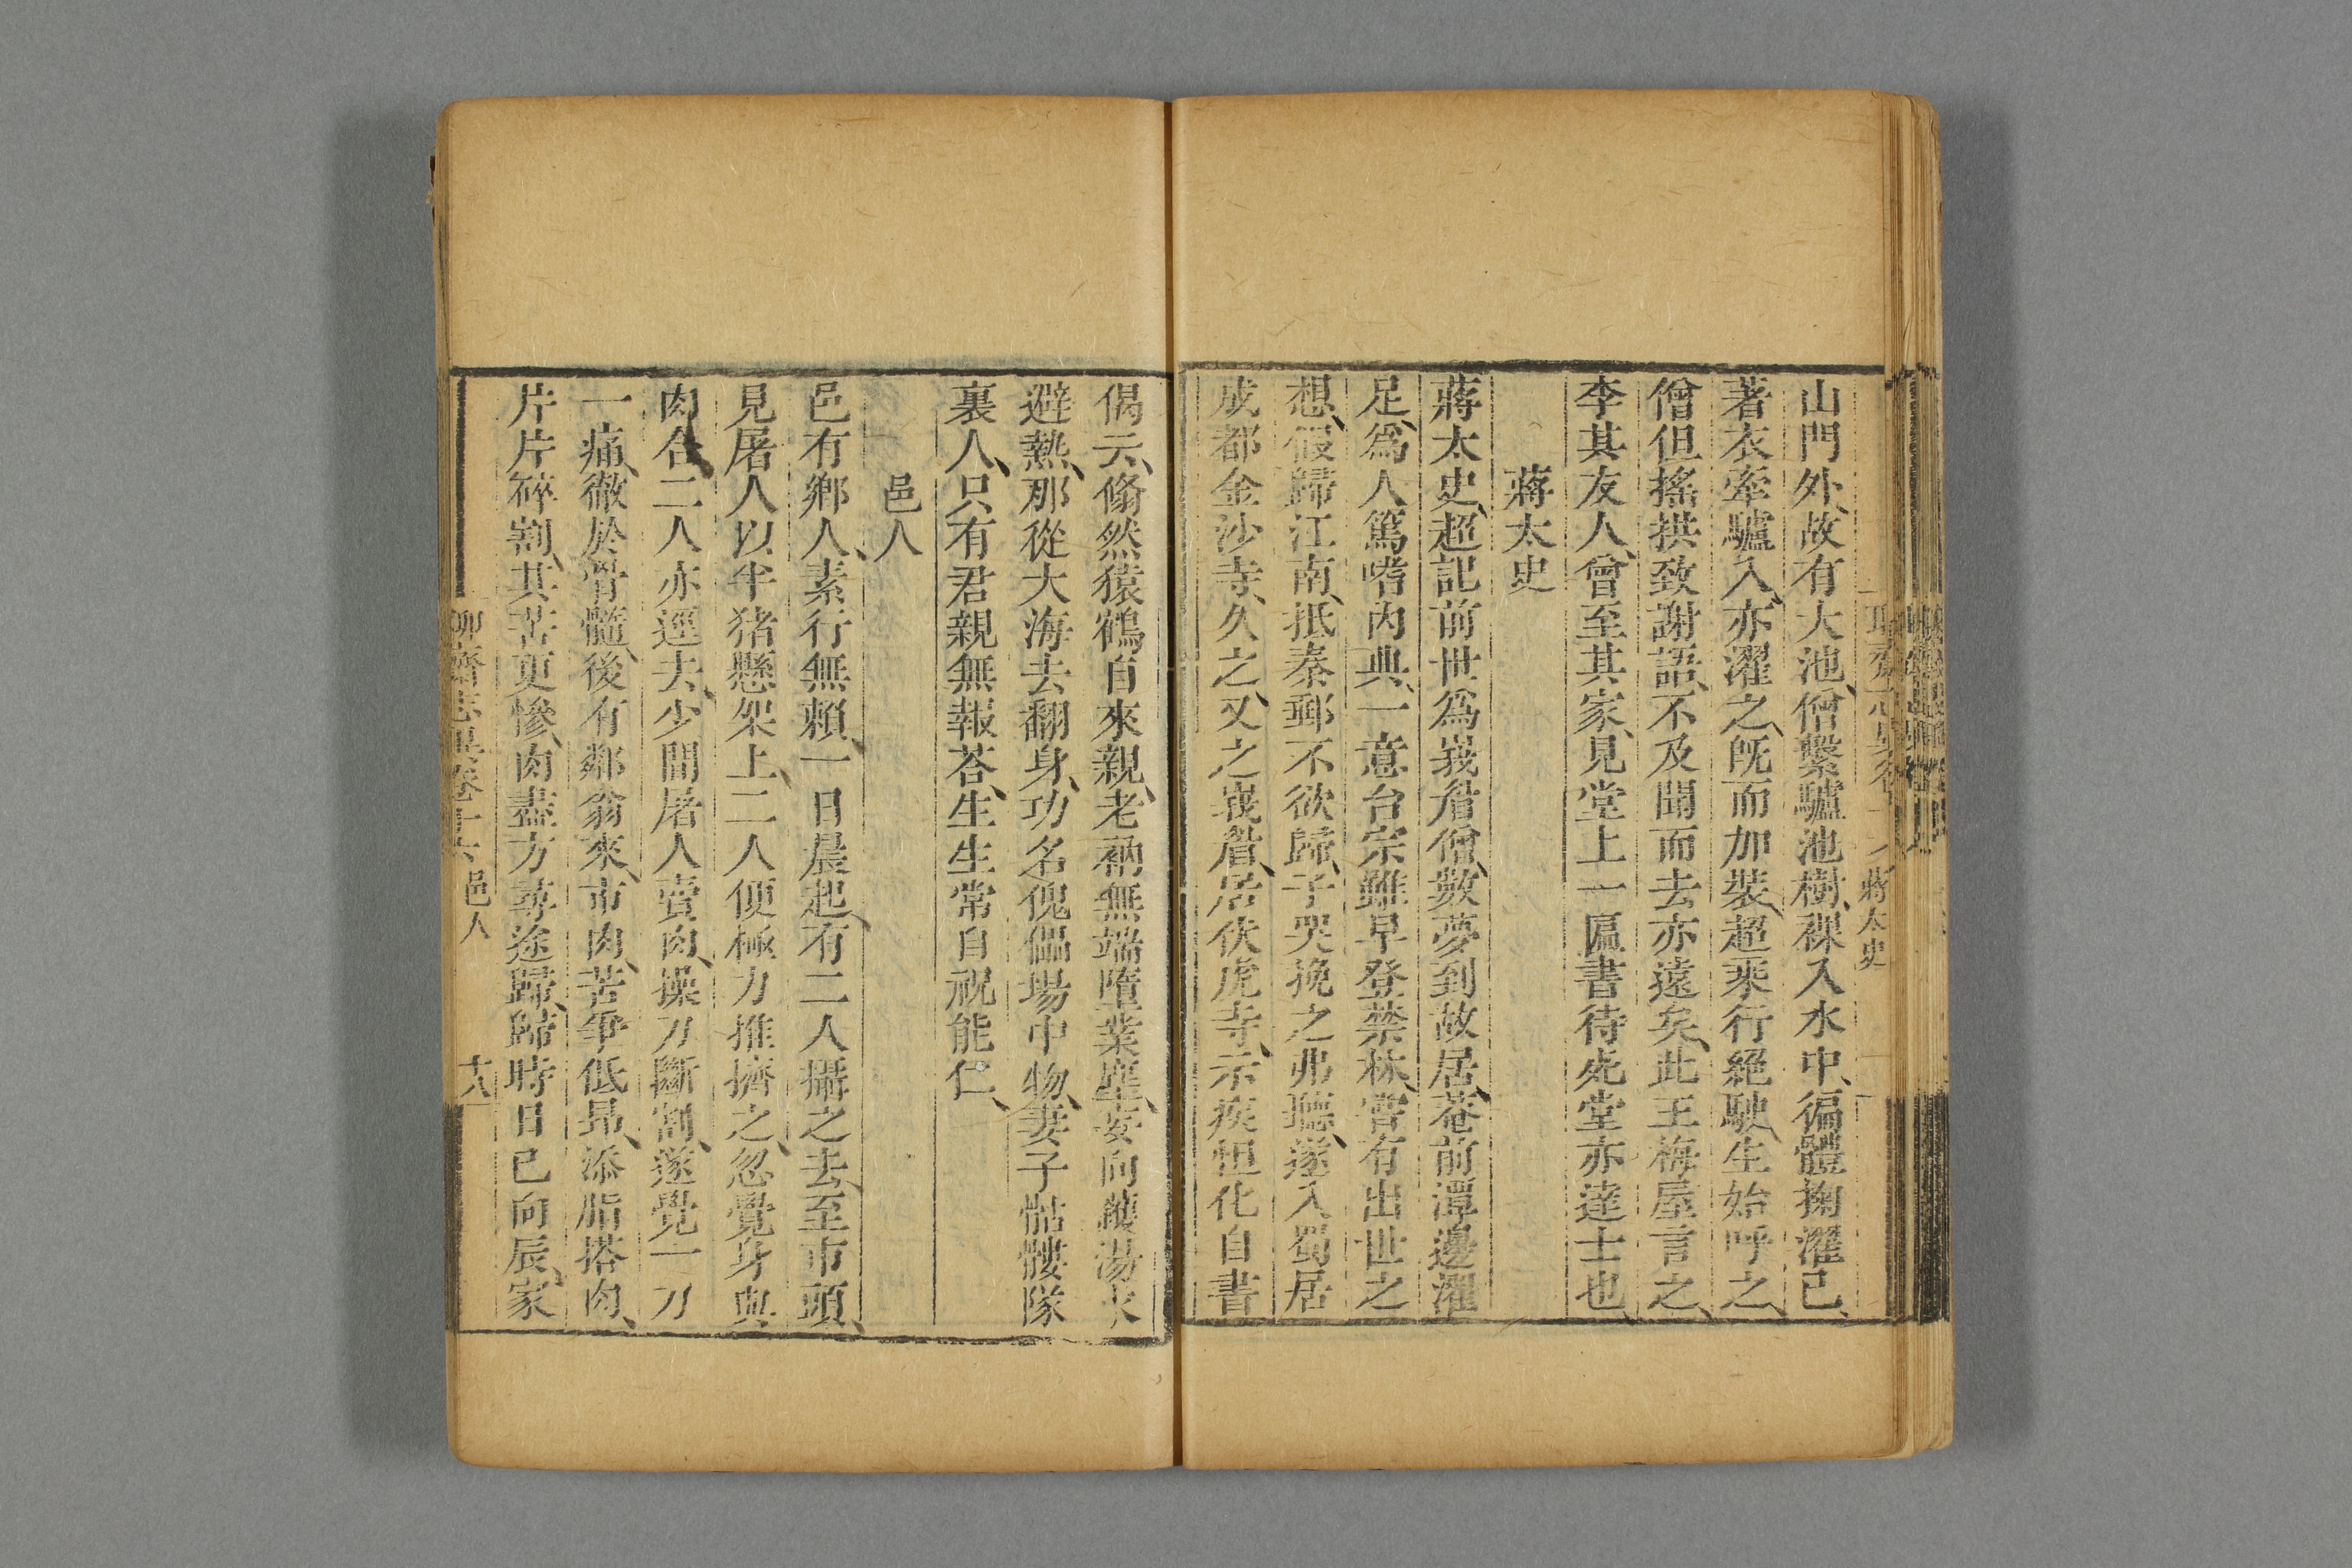 蔣太史
山門外、故有大池、僧繫驢池樹、裸入水中、徧體掬濯、已、
著衣牽驢入、亦濯之、旣而加裝、超乘行絕駛、生始呼之、
僧但搖拱致謝、語、不及聞而去亦遠矣、此王梅屋言之、
李其友人、曾至其家、見堂上一匾書待死堂亦達士也、
蔣太史
蔣太史、超記前世爲峩眉僧、數夢到故居、菴前潭邊濯
足、爲人篤嗜內典、一意台宗雖早登禁林、嘗有出世之
想、假歸江南、抵秦郵不欲歸、子哭挽之弗聽、遂入蜀居
成都金沙寺、久之、又之峩眉、居伏虎寺、示疾怛化自書
偈云、翛然猿鶴自來親、老衲無端墮業塵、妄向鑊湯求
避熱、那從大海去翻身、功名傀儡場中物、妻子骷髏隊
裏人、只有君親無報荅、生生常自祝能仁、
邑人
邑有鄉人、素行無賴、一日晨起、有二人攝之去、至市頭、
見屠人以半猪懸架上、二人便極力推擠之、忽覺身與
肉合、二人亦逕去、少間屠人賣肉、操刀斷割、遂覺一刀
一痛、徹於骨髓、後有鄰翁來、市肉、苦爭低昻、添脂搭肉、
片片碎割、其苦更慘、肉盡方尋途歸、歸時日已向辰、家
聊齋志異卷十六 邑人 十八